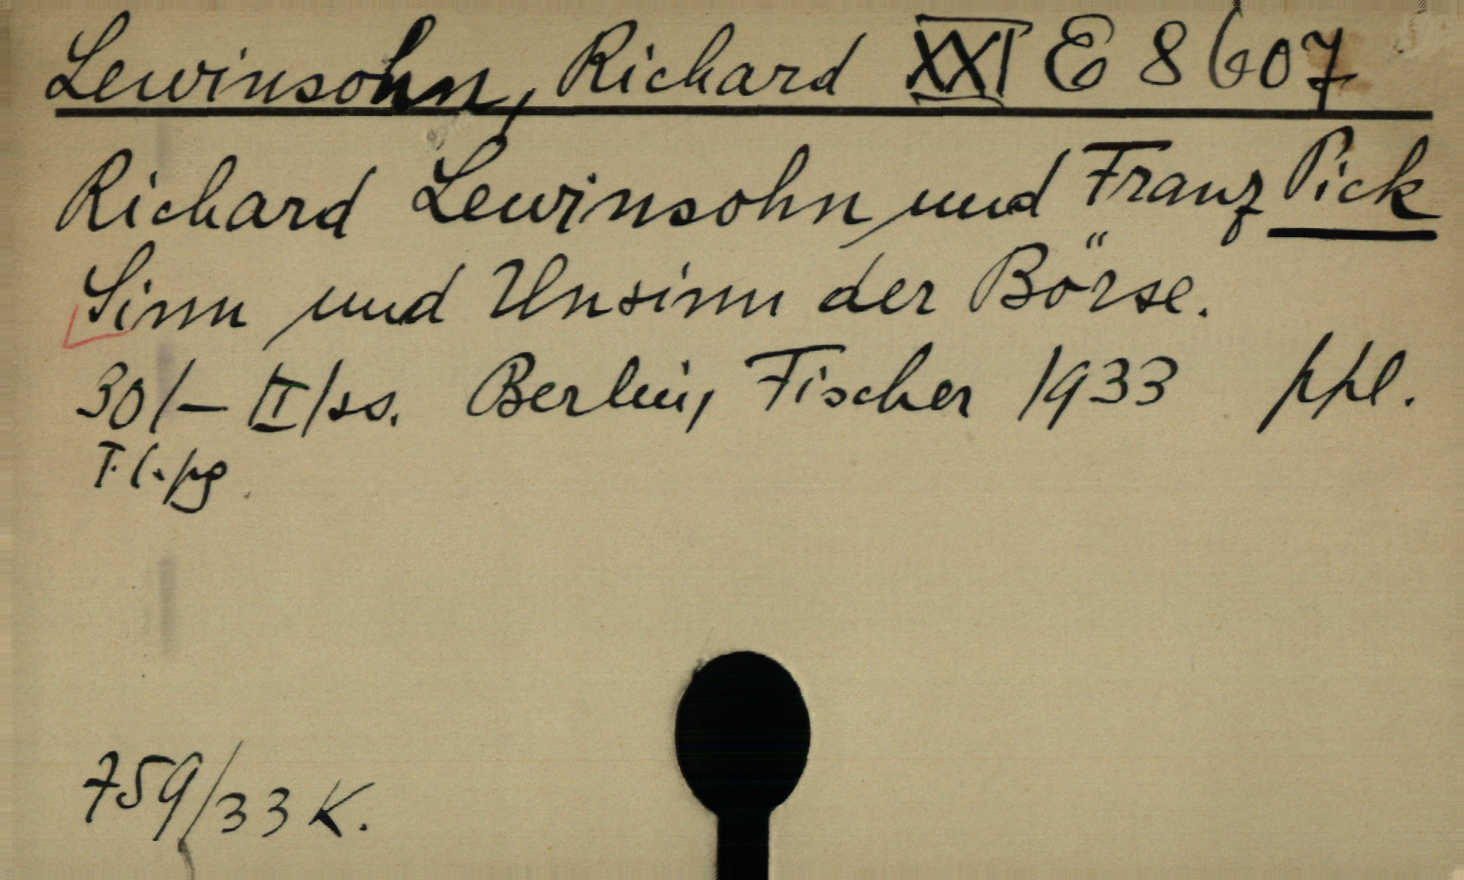 Lewinsohn, Richard XXI E 8607
Richard Lewinsohn und Franz Pick
Sinn und Unsinn der Börse.
30/- II/ss. Berlin, Fischer 1933 ppl.
759/33 K.